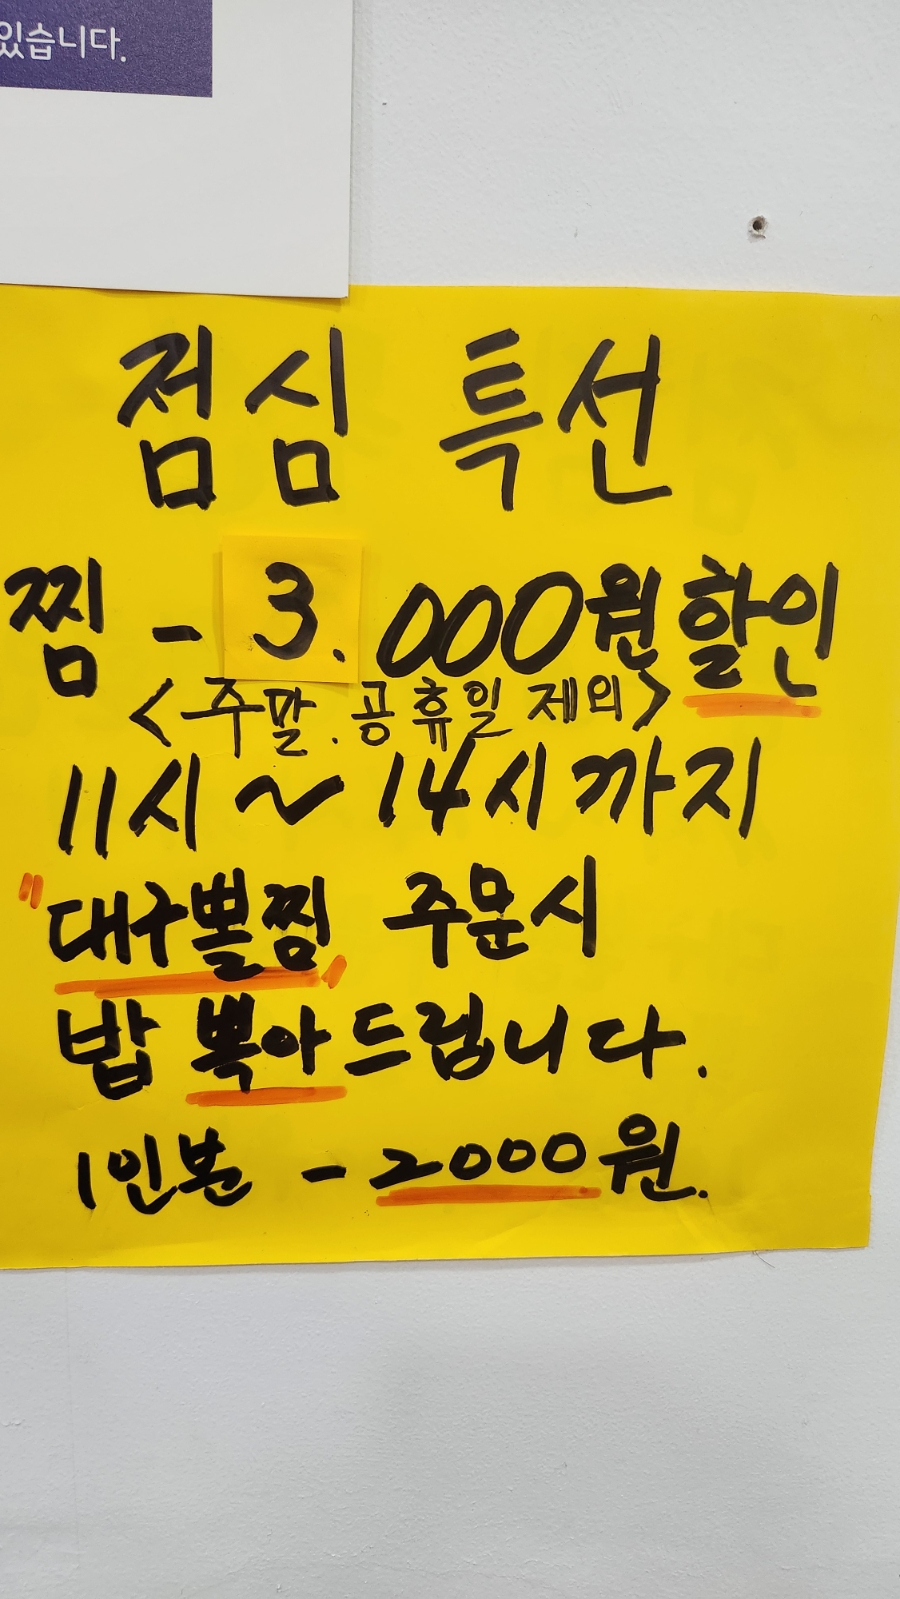 있습니다.
점심 특선
찜 - 3.000원 할인
<주말.공휴일 제외>
11시 ~ 14시까지
"대구뽈찜" 주문시
밥 뽁아드립니다.
1인분 - 2000원.